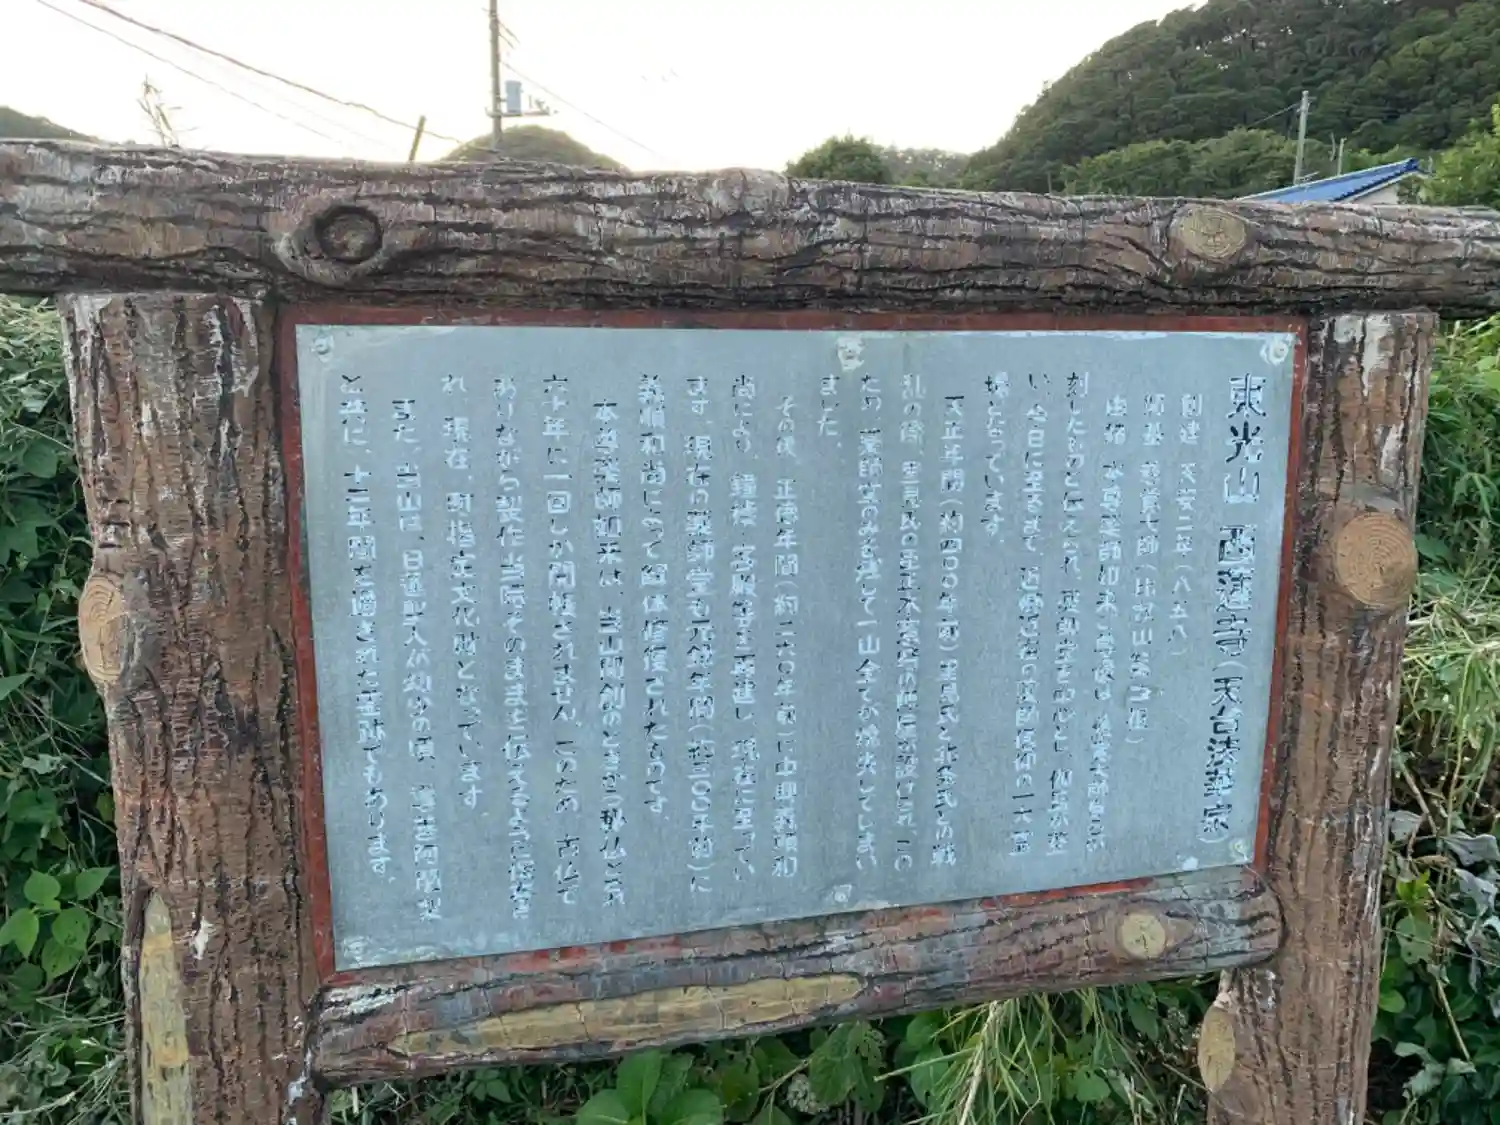 東光山 西蓮寺(天台法華宗)
創建 天安二年(八五九)
開基 慈覚大師(比叡山
由緒 本尊薬師如来
刻したものと伝えられ、薬師堂を中心に
い、今日に至るまで、近郷近在の 信仰の一大霊
場となっています。
天正年間(約四〇〇年前)里見氏と北条氏との戦
乱の後、里見氏の 設けられ、この
ため、薬師堂のみを残して一山全てが焼失してしまい
ました。
その後、正徳年間(約二六〇年前)に中興義順和
尚により、鐘楼、客殿等を再建し、現在に至ってい
ます。現在の薬師堂も元禄年間(約三〇〇年前)に
義順和尚によって解体修復されたものです。
本尊薬師如来は、当山開創のときより秘仏とされ
六十年に一回しか開帳されません。このため、古仏で
ありながら製作当時そのままを伝えるように
れ、現在、町指定文化財となっています。
また、当山は、日蓮聖人が幼少の頃、道善阿闍梨
と共に、十二年間を過ごされた霊跡でもあります。